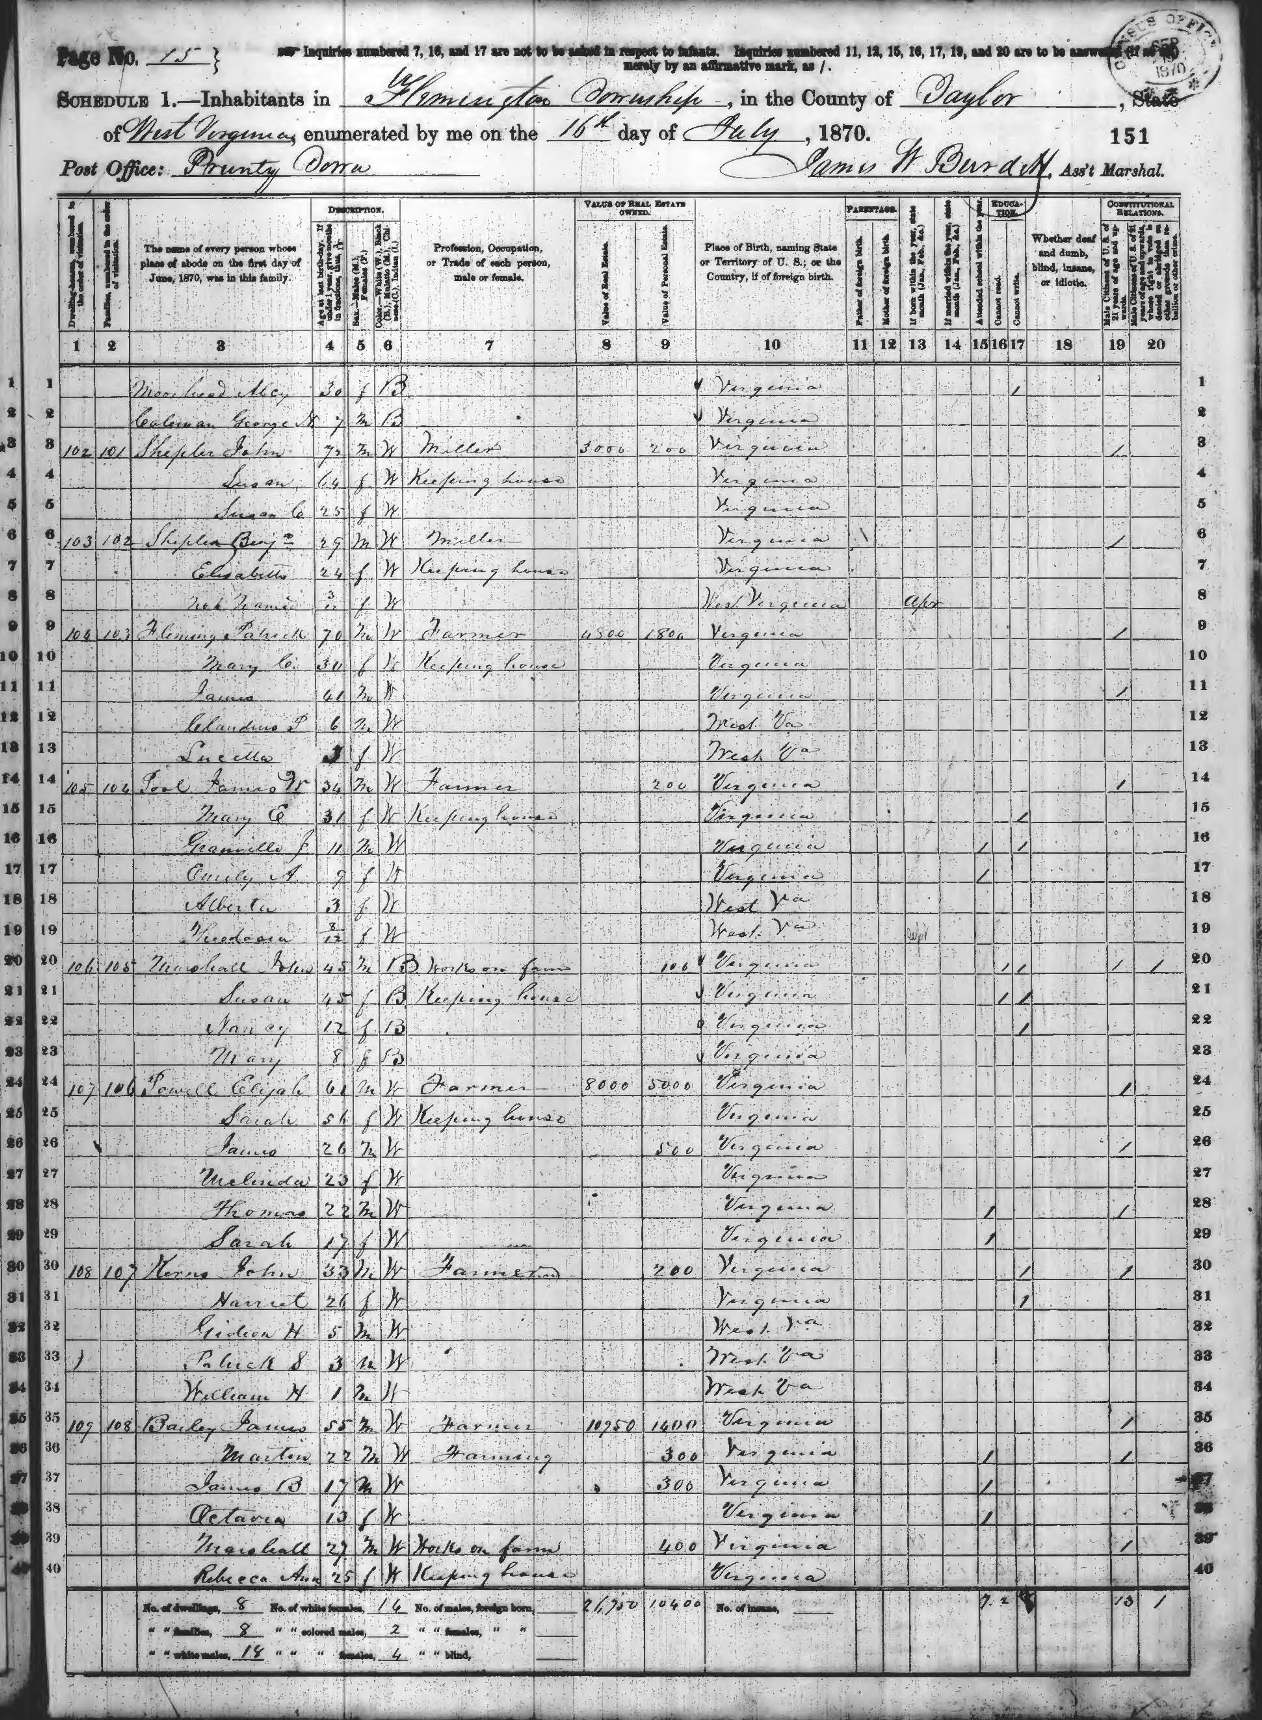 Page No. 15
Inquiries numbered 7, 16, and 17 are not to be asked in respect to infants. Inquiries numbered 11, 12, 15, 16, 17, 19, and 20 are to be answered (if at all)
merely by an affirmative mark, as /.
CENSUS OFFICE SEP 1870
SCHEDULE 1.—Inhabitants in Flemington Township, in the County of Taylor, State
of West Virginia, enumerated by me on the 16th day of July, 1870. 151
Post Office: Prunty Town James W Burdett, Ass't Marshal.
DESCRIPTION. VALUE OF REAL ESTATE OWNED. PARENTAGE. EDUCATION. CONSTITUTIONAL RELATIONS.
Dwelling-houses, numbered in the order of visitation.
Families, numbered in the order of visitation.
The name of every person whose place of abode on the first day of June, 1870, was in this family.
Age at last birth-day. If under 1 year, give months in fractions, thus, 3/12
Sex.—Males (M.), Females (F.)
Color.—White (W.), Black (B.), Mulatto (M.), Chinese (C.), Indian (I.)
Profession, Occupation, or Trade of each person, male or female.
Value of Real Estate.
Value of Personal Estate.
Place of Birth, naming State or Territory of U. S.; or the Country, if of foreign birth.
Father of foreign birth.
Mother of foreign birth.
If born within the year, state month (Jan., Feb., &c.)
If married within the year, state month (Jan., Feb., &c.)
Attended school within the year.
Cannot read.
Cannot write.
Whether deaf and dumb, blind, insane, or idiotic.
Male Citizens of U. S. of 21 years of age and upwards.
Male Citizens of U. S. of 21 years of age and upwards, where right to vote is denied or abridged on other grounds than rebellion or other crime.
1 2 3 4 5 6 7 8 9 10 11 12 13 14 15 16 17 18 19 20
1 1 30 f B Virginia / 1
2 2 Coleman George 7 M B Virginia 2
3 3 102 101 Shepler John 72 M W Miller 3000 200 Virginia / 3
4 4 Susan 64 f W Keeping house Virginia 4
5 5 Susan C 25 f W Virginia 5
6 6 103 102 Shepler Benj 29 M W Miller Virginia / 6
7 7 Elisabeth 24 f W Keeping house Virginia 7
8 8 Not Named f W West Virginia Apr 8
9 9 104 103 Fleming Patrick 70 M W Farmer 4800 1800 Virginia / 9
10 10 Mary C. f W Keeping house Virginia 10
11 11 James 41 M W Virginia / 11
12 12 Claudius P 6 M W West Va 12
13 13 Lucetta f W West Va 13
14 14 105 104 Pool James W 34 M W Farmer 200 Virginia / 14
15 15 Mary E 31 f W Keeping house Virginia / 15
16 16 Granville J 11 M W Virginia / / 16
17 17 Emily A 9 f W Virginia / 17
18 18 Alberta 3 f W West Va 18
19 19 Theodosia 8/12 f W West Va 19
20 20 106 105 Marshall John 45 M B Works on farm 100 Virginia / / / / 20
21 21 Susan 45 f B Keeping house Virginia / / 21
22 22 Nancy 12 f B Virginia / 22
23 23 Mary 8 f B Virginia 23
24 24 107 106 Powell Elijah 61 M W Farmer 8000 5000 Virginia / 24
25 25 Sarah 56 f W Keeping house Virginia 25
26 26 James 26 M W 500 Virginia / 26
27 27 Melinda 23 f W Virginia 27
28 28 Thomas 22 M W Virginia / / 28
29 29 Sarah 17 f W Virginia / 29
30 30 108 107 Kerns John 33 M W Farmer 200 Virginia / / 30
31 31 Harriet 26 f W Virginia / 31
32 32 Gideon H 5 M W West Va 32
33 33 Patrick S 3 M W West Va 33
34 34 William H 1 M W West Va 34
35 35 109 108 Bailey James 55 M W Farmer 10950 1400 Virginia / 35
36 36 Martin 22 M W Farming 300 Virginia / / 36
37 37 James B 17 M W 300 Virginia / 37
38 38 Octavia 13 f W Virginia / 38
39 39 Marshall 27 M W Works on farm 400 Virginia / 39
40 40 Rebecca Ann 25 f W Keeping house Virginia 40
No. of dwellings, 8 No. of white females, 16 No. of males, foreign born, 26,750 10400 No. of insane, 7 2 8 13 1
" " families, 8 " " colored males, 2 " " females, " "
" " white males, 18 " " " females, 4 " " blind,